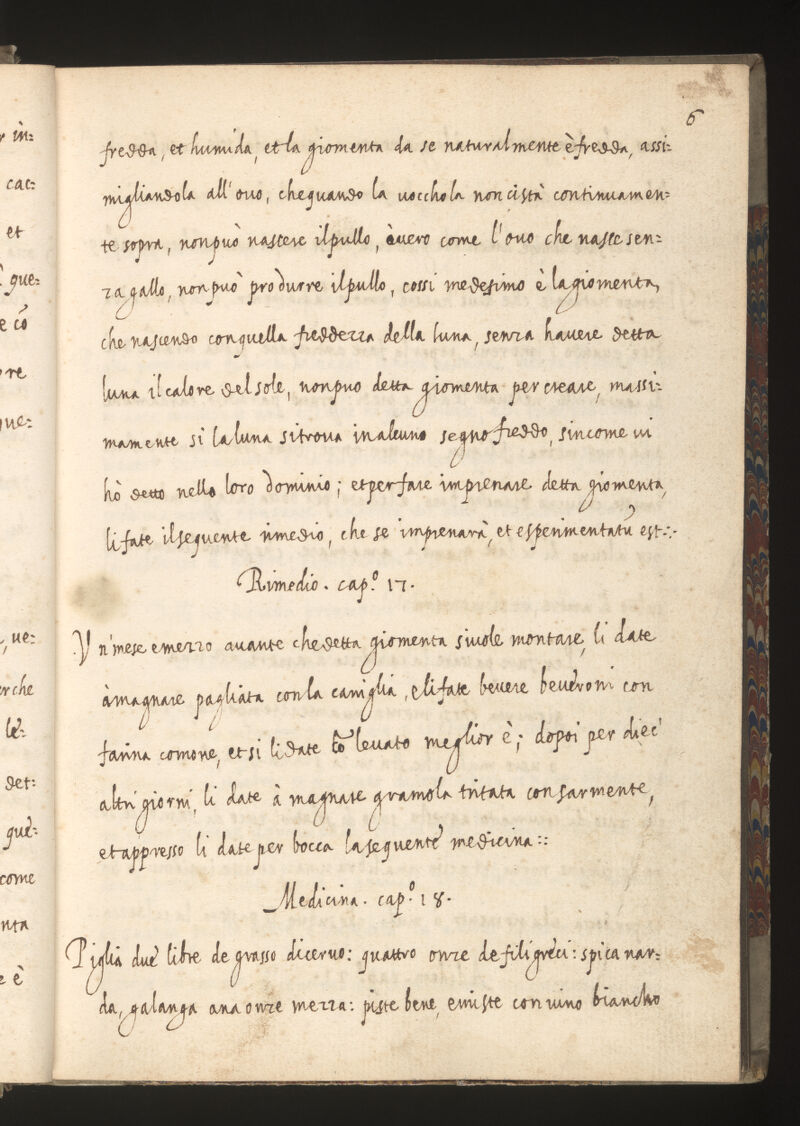 6
fredda, et humida, et la giomenta da se naturalmente è fredda, assi=
migliandola all'ouo, che quando la uocchola non ci stà continuamen=
te sopra, non può nascere il pullo, òuero come l'ouo che nasce sen=
za gallo, non può produrre il pullo, cossi medesimo è la giomenta,
che nascendo con quella freddezza della luna, senza hauere detta
luna il calore del sole, non puo detta giomenta per creare, massi=
mamente si la luna si troua in alcuno segno freddo, sincome ui
hò detto nello loro dominio; et per fare imprenare detta giomenta,
li fate il seguente rimedio, che se imprenarà, et esperimentatũ est∴
Rimedio. cap.º 17.
Vn'mese e mezzo auante che detta giomenta si uole montare, li date
à magnare pagliata con la caniglia, e li fate beuere beueroni con
farina comone, et si li date lo leuato meglior è; dopoi per dieci
altri giorni, li date à magnare gramola tritata con sarmente,
et appresso li date per bocca la seguente medicina::
Medicina. cap.º 18.
Piglia due libre de grasso di ceruo: quattro onze de fili greci: spica nar=
da, galanga ana onze mezza: piste bene, e miste con uino biancho
r in=
cac=
et
que=
e cõ
re
que=
, ue=
rche
le=
det=
que=
come
nta
e è